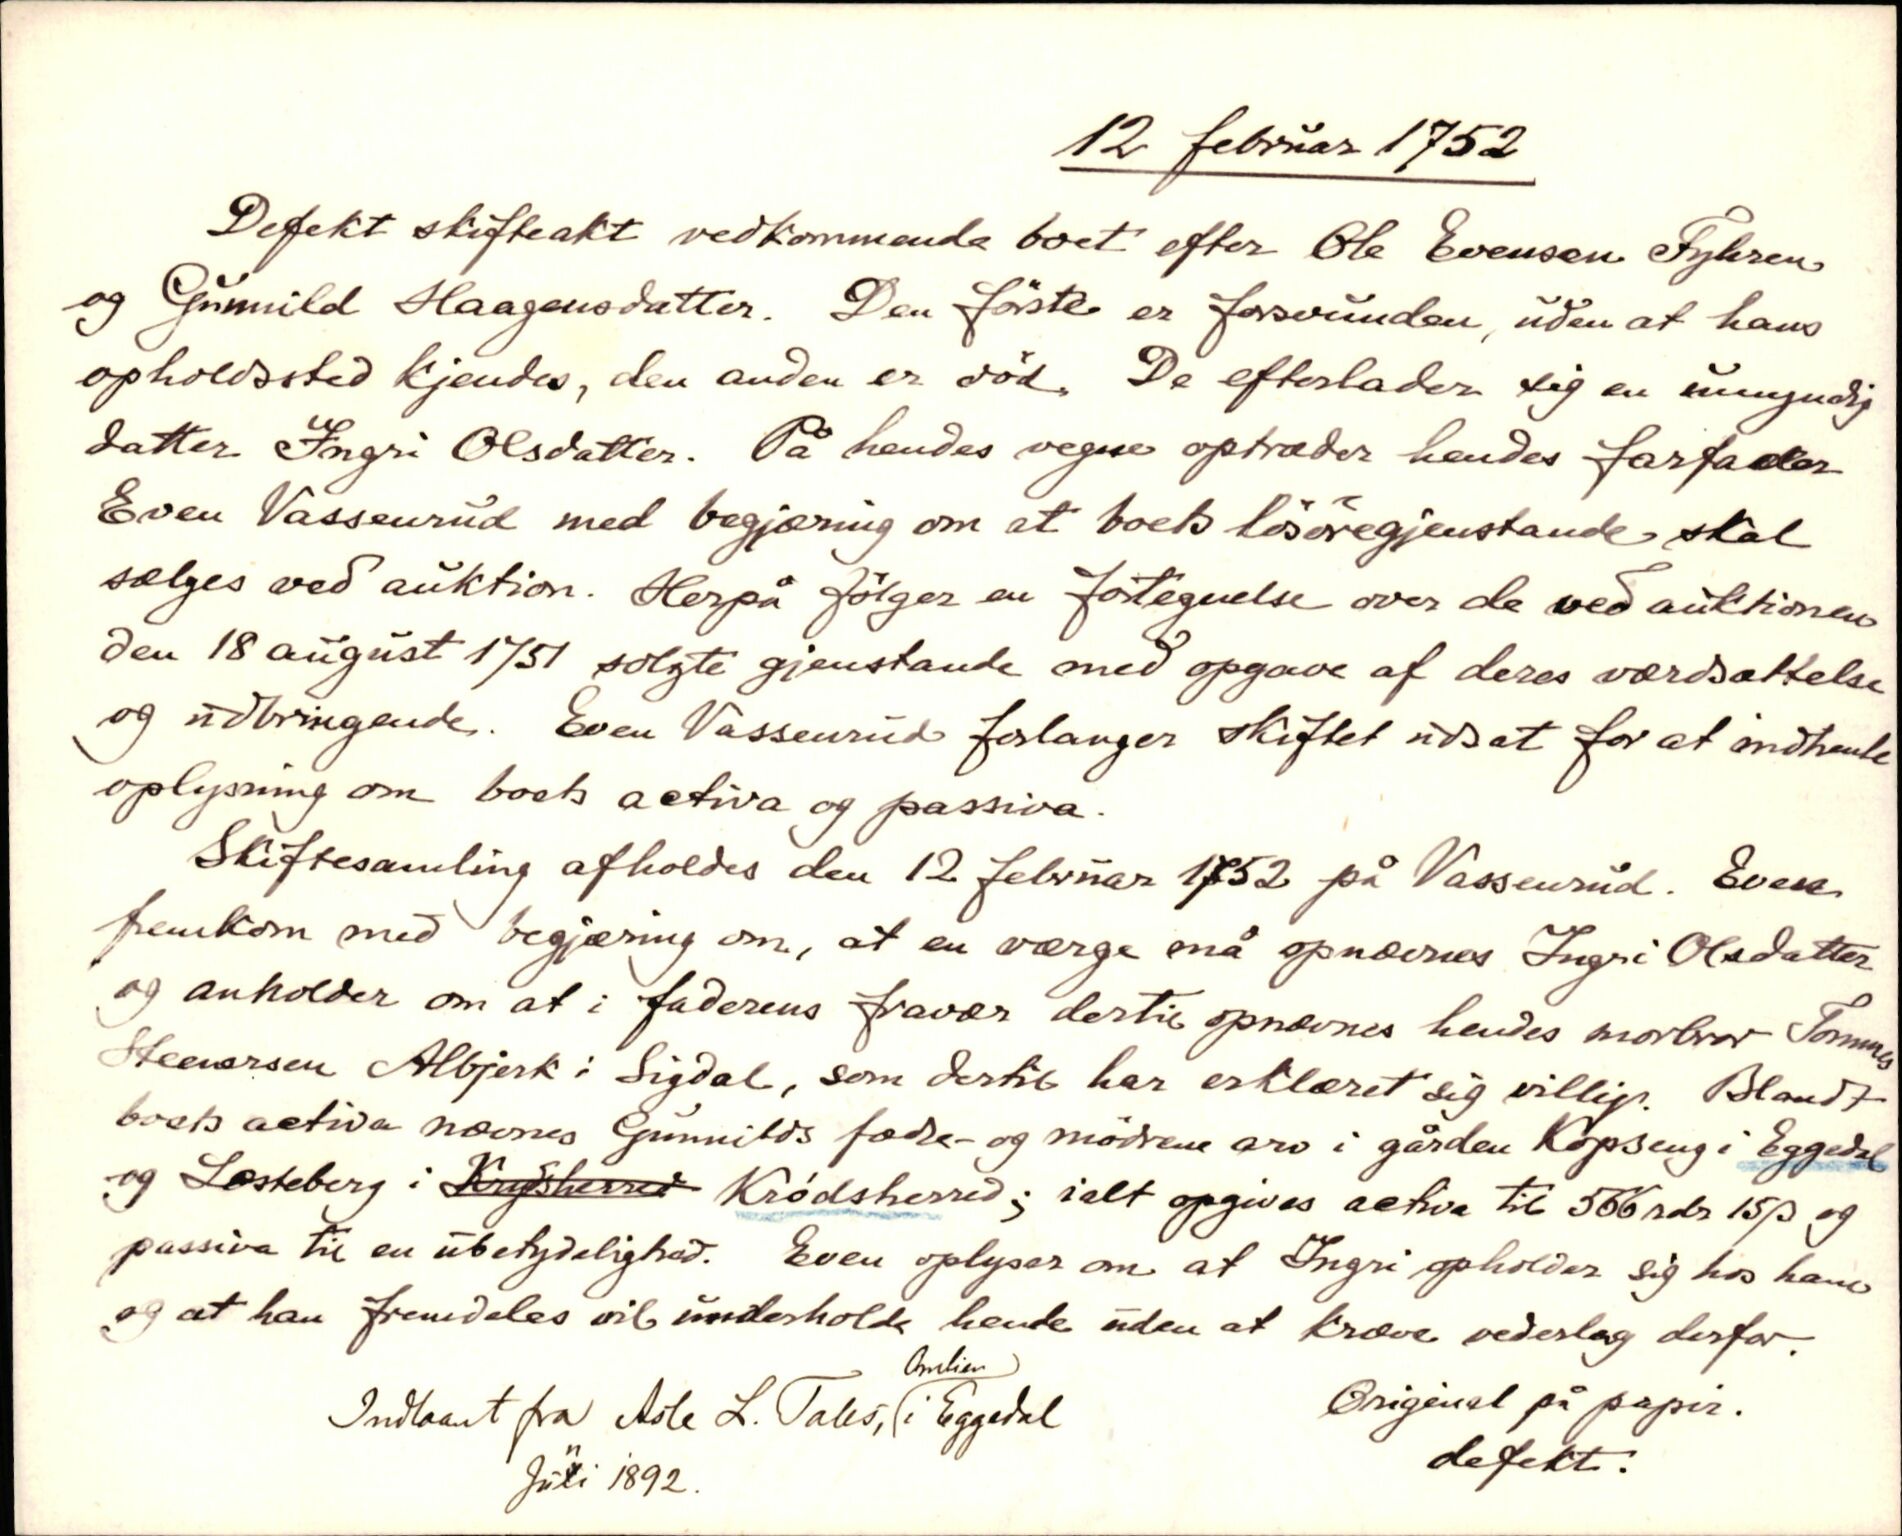 12 februar 1752
Defekt skifteakt vedkommende boet efter Ole Evensen Fyhren
og Gunnild Haagensdatter. Den første er forsvunden, uden at hans
opholdssted kjendes, den anden er död. De efterlader sig en umyndig
datter Ingri Olsdatter. På hendes vegne optræder hendes farfader
Even Vassenrud med begjæring om at boets lösöregjenstande skal
sælges ved auktion. Herpå fölger en fortegnelse over de ved auktionen
den 18 august 1751 solgte gjenstande med opgave af deres værdsættelse
og udbringende. Even Vassenrud forlanger skiftet udsat for at indhente
oplysning om boets activa og passiva.
Skiftesamling afholdes den 12 februar 1752 på Vassenrud. Even
fremkom med begjæring om, at en værge må opnævnes Ingri Olsdatter
og anholder om at i faderens fravær dertil opnævnes hendes morbror Tommes
Steenersen Albjerk i Sigdal, som dertil har erklæret sig villig. Blandt
boets activa nævnes Gunnilds fædre- og mödrene arv i gården Kopseng i Eggedal
og Læsteberg i Krydsherred Krödsherred; ialt opgives activa til 566 rdr 15 β og
passiva til en ubetydelighed. Even oplyser om at Ingri opholder sig hos ham
og at han fremdeles vil underholde hende uden at kræve vederlag derfor.
Indlaant fra Asle L. Tales, (i Eggedal
Juni 1892.
Original på papir.
defekt.